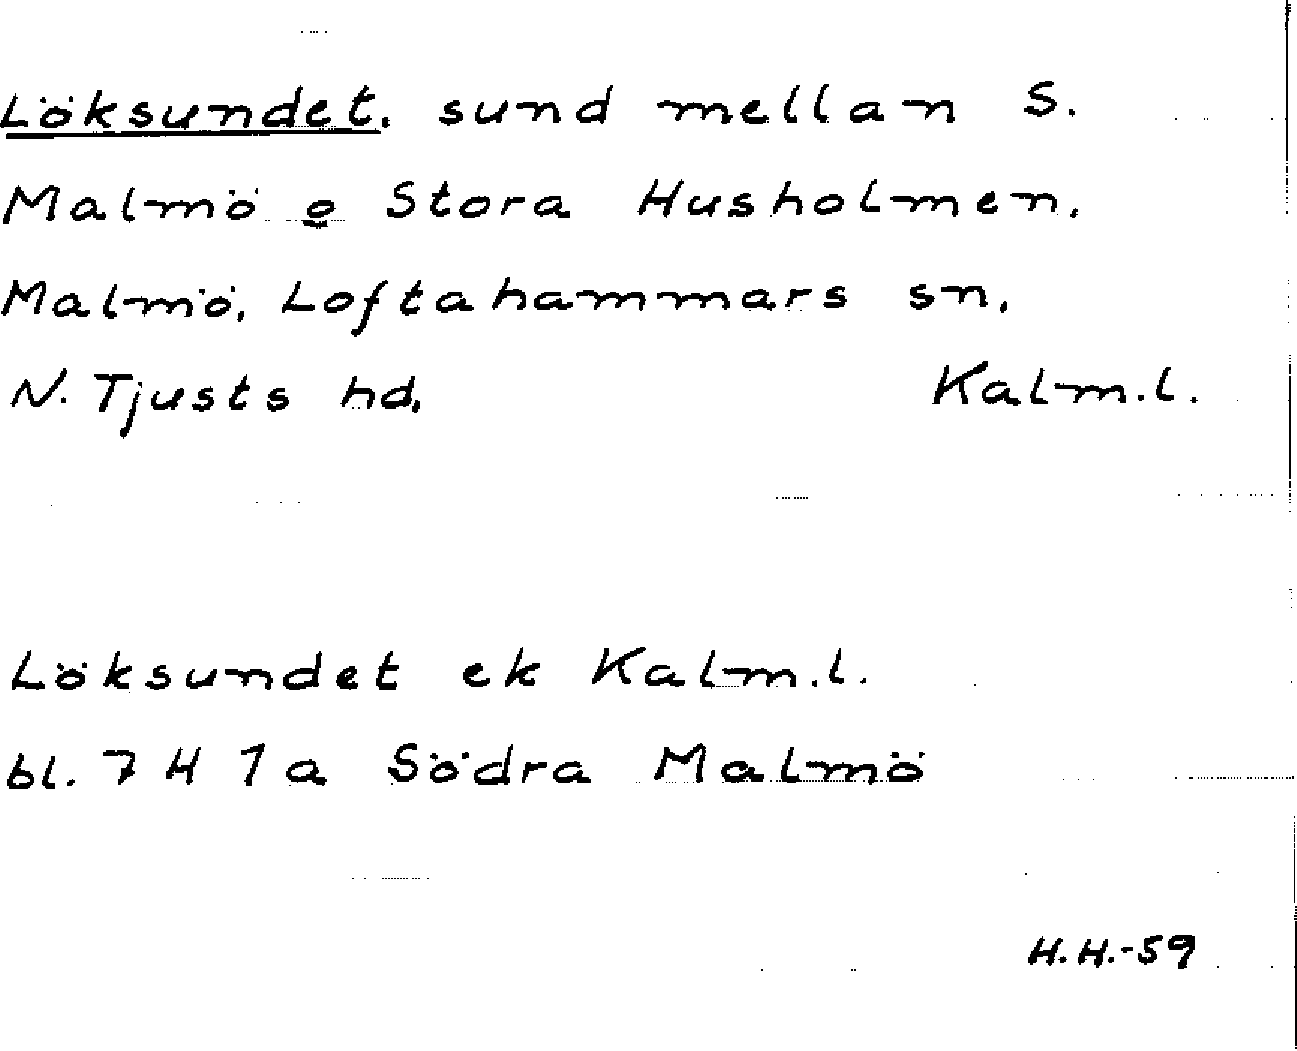 Löksundet. sund mellan S.
Malmö o Stora Husholmen,
Malmö, Loftahammars sn,
N. Tjusts hd, Kalm.l.
Löksundet ek Kalm.l.
bl. 7 H 1a Södra Malmö
H.H.-59